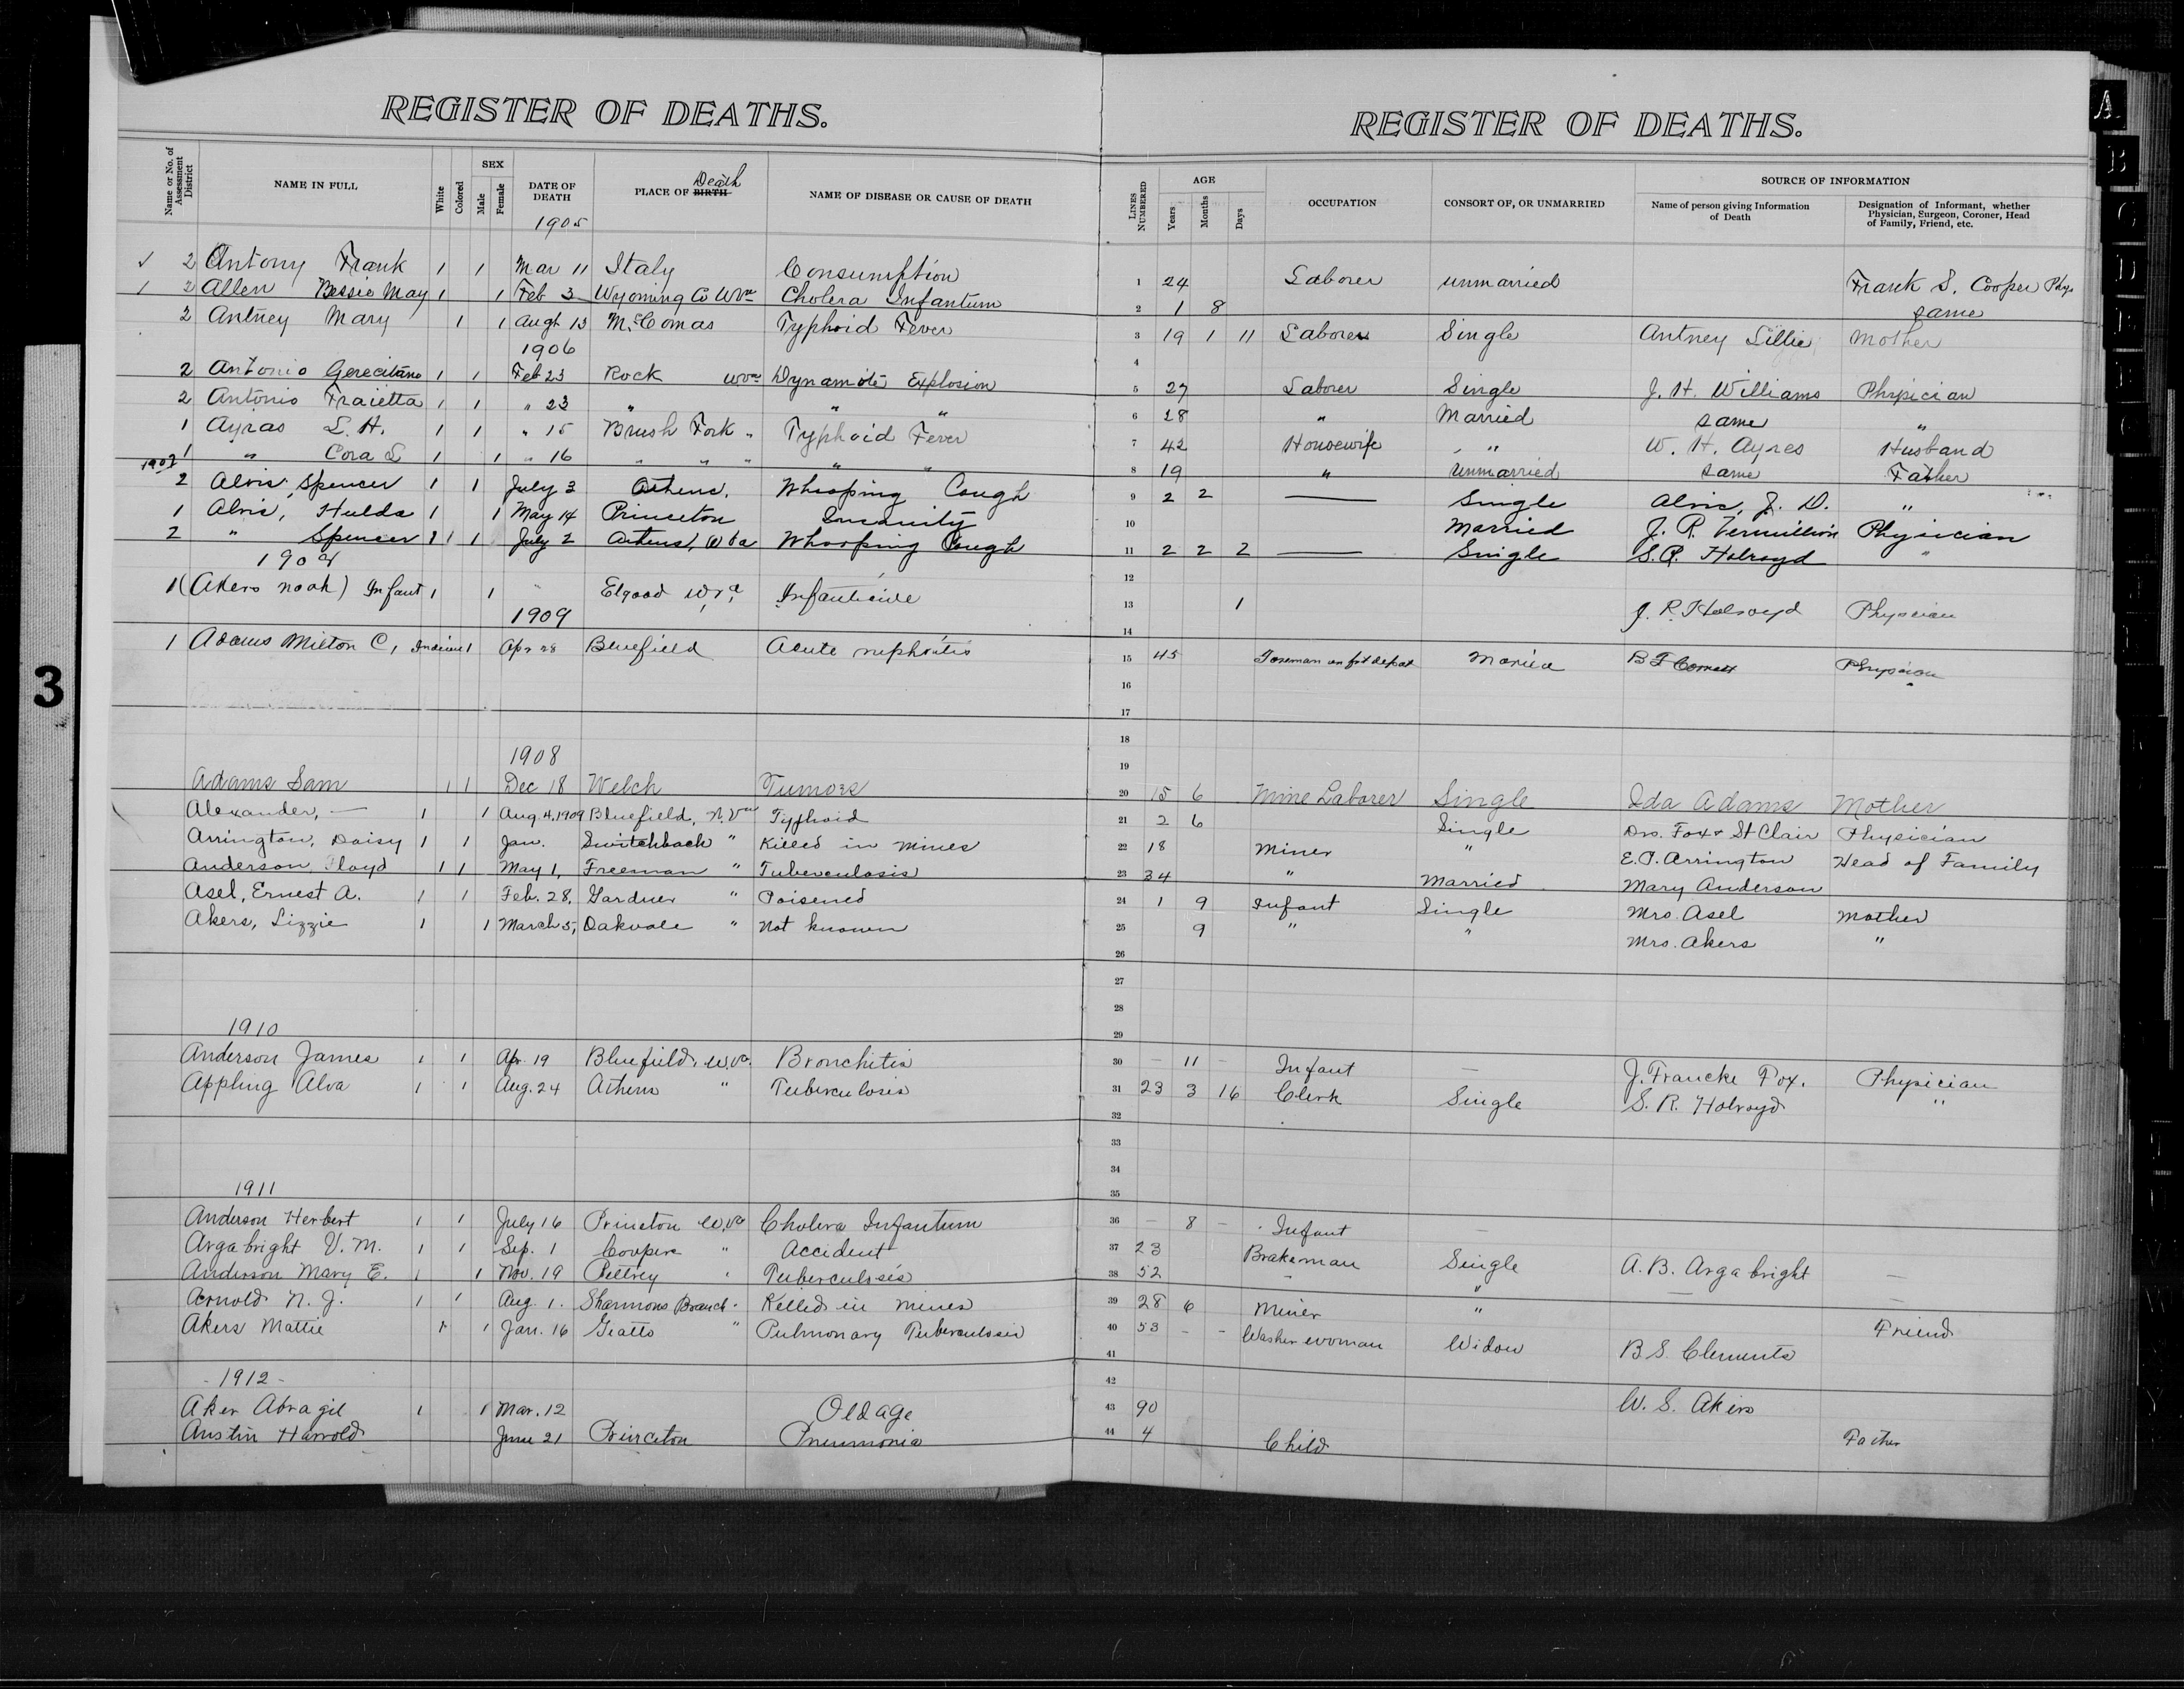 REGISTER OF DEATHS.
Name or No. of Assessment District
NAME IN FULL
White
Colored
SEX
Male
Female
DATE OF DEATH
1905
PLACE OF BIRTH Death
NAME OF DISEASE OR CAUSE OF DEATH
2 Antony Frank 1 1 Mar 11 Italy Consumption
1 2 Allen Bessie May 1 1 Feb 3 Wyoming Co WVa Cholera Infantum
2 Antney Mary 1 1 Augt 13 McComas Typhoid Fever
1906
2 Antonio Gerecitano 1 1 Feb 23 Rock WVa Dynamite Explosion
2 Antonio Fraietta 1 1 " 23 " " "
1 Ayras L. H. 1 1 " 15 Brush Fork " Typhoid Fever
1 " Cora L 1 1 " 16 " " " " "
1907
2 Alvis, Spencer 1 1 July 3 Athens, Whooping Cough
1 Alvis, Hulda 1 1 May 14 Princeton Insanity
2 " Spencer 1 1 July 2 Athens, WVa Whooping Cough
190
1 (Akers Noah) Infant 1 1 " Elgood WVa, Infanticide
1909
1 Adams Milton C, 1 Apr 28 Bluefield Acute nephritis
1908
Adams Sam 1 1 Dec 18 Welch Tumors
Alexander, — 1 1 Aug. 4, 1909 Bluefield, W.Va Typhoid
Arrington, Daisy 1 1 Jan. Switchback " Killed in mines
Anderson, Floyd 1 1 May 1, Freeman " Tuberculosis
Asel, Ernest A. 1 1 Feb. 28, Gardner " Poisened
Akers, Lizzie 1 1 March 5, Oakvale " Not known
1910
Anderson James 1 1 Apr. 19 Bluefield, W.Va. Bronchitis
Appling Alva 1 1 Aug. 24 Athens " Tuberculosis
1911
Anderson Herbert 1 1 July 16 Princeton W.Va Cholera Infantum
Argabright V. M. 1 1 Sep. 1 Coopers " Accident
Anderson Mary E. 1 1 Nov. 19 Pettrey " Tuberculosis
Arnold N. J. 1 1 Aug. 1. Sharmons Branch " Killed in mines
Akers Mattie 1 1 Jan. 16 Giatto " Pulmonary Tuberculosis
- 1912 -
Aker Abragil 1 1 Mar. 12 Old age
Austin Harrold June 21 Princeton Pneumonia
REGISTER OF DEATHS.
LINES NUMBERED
AGE
Years
Months
Days
OCCUPATION
CONSORT OF, OR UNMARRIED
SOURCE OF INFORMATION
Name of person giving Information of Death
Designation of Informant, whether Physician, Surgeon, Coroner, Head of Family, Friend, etc.
1 24 Laborer unmarried Frank S. Cooper Phys
2 1 8 same
3 19 1 11 Laborer Single Antney Lillie Mother
4
5 27 Laborer Single J. H. Williams Physician
6 28 " Married same "
7 42 Housewife " W. H. Ayres Husband
8 19 " Unmarried same Father
9 2 2 — Single Alvis, J. D. "
10 Married J. R. Vermillion Physician
11 2 2 2 — Single S. R. Holroyd "
12
13 1 J. R. Holroyd Physician
14
15 45 Foreman on frt depot Maried B F Cornett Physician
16
17
18
19
20 15 6 Mine Laborer Single Ida Adams Mother
21 2 6 Single Drs. Fox & St Clair Physician
22 18 Miner " E. P. Arrington Head of Family
23 34 " Married Mary Anderson
24 1 9 Infant Single Mrs. Asel Mother
25 9 " " Mrs. Akers "
26
27
28
29
30 - 11 - Infant — J. Francke Fox. Physician
31 23 3 16 Clerk Single S. R. Holroyd "
32
33
34
35
36 - 8 - Infant —
37 23 Brakeman Single A. B. Argabright —
38 52 - " — —
39 28 6 Miner "
40 53 - - Washer woman Widow B. S. Clements Friend
41
42
43 90 W. S. Akers
44 4 Child Father
A
B
C
D
E
F
3